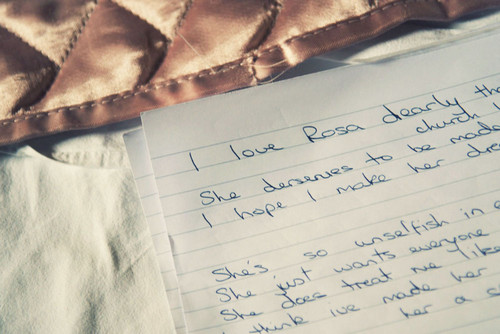 I love Rosa dearly
church
She deserves to be made
I hope I make her
She's, so unselfish in
She just wants everyone
She does treat me like
think ive made her
her a